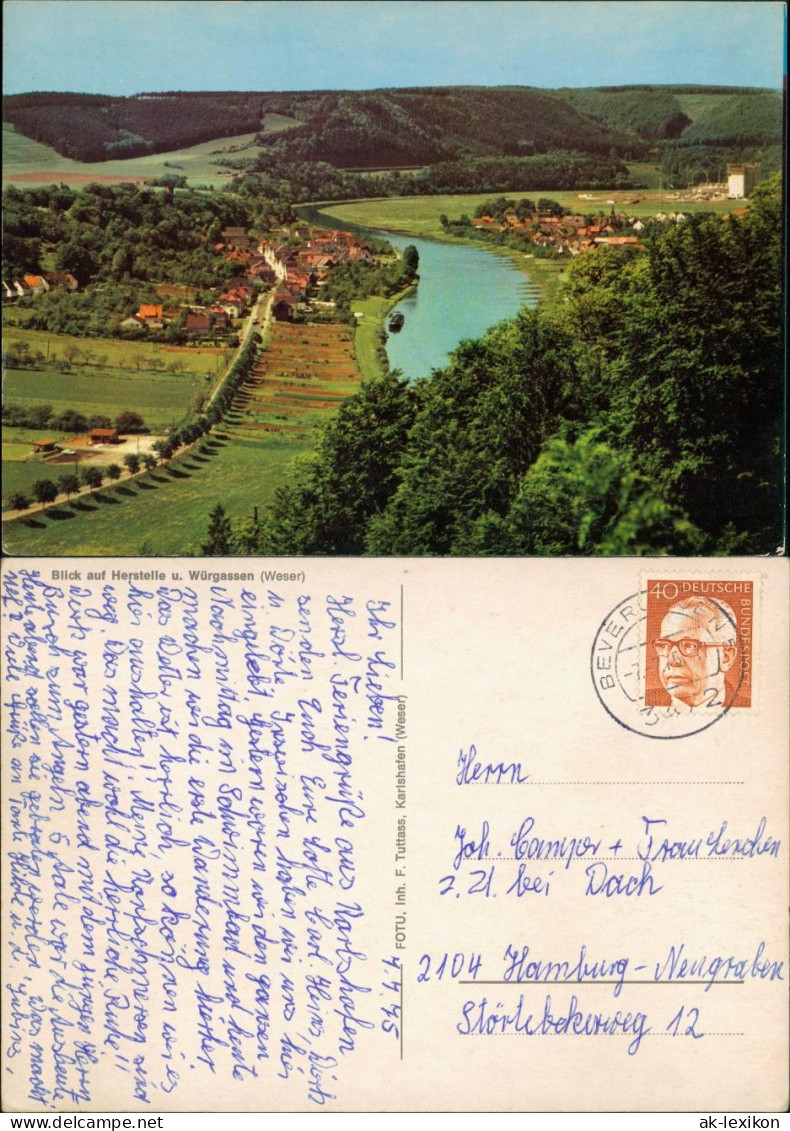 Blick auf Herstelle u. Würgassen (Weser)
FOTU, Inh. F. Tuttass, Karlshafen (Weser)
40 DEUTSCHE
BUNDESPOST
BEVERUNGEN
2
4.4.75
Ihr Lieben!
Herzl. Feriengrüße aus Karlshafen
senden Euch Eure Lotte Carl-Heinz, Dirk
u. Dörte. Inzwischen haben wir uns hier
eingelebt, gestern waren wir den ganzen
Nachmittag im Schwimmbad und heute
machten wir die erste Wanderung hierher
Das Wetter ist herrlich, so können wir es
hier aushalten! Meine Kopfschmerzen sind
weg. Das macht wohl die herrliche Ruhe!!
Dirk war gestern abend mit dem jungen Herrn
zum Angeln 5 Aale war die Ausbeute,
Heute abend sollen sie gebraten werden. Was macht
Viele Grüße an Tante u.
Herrn
Joh. Camper + Frau Lenchen
z. Zt. bei Dach
2104 Hamburg-Neugraben
Störtebekerweg 12
oldthing
ak-lexikon